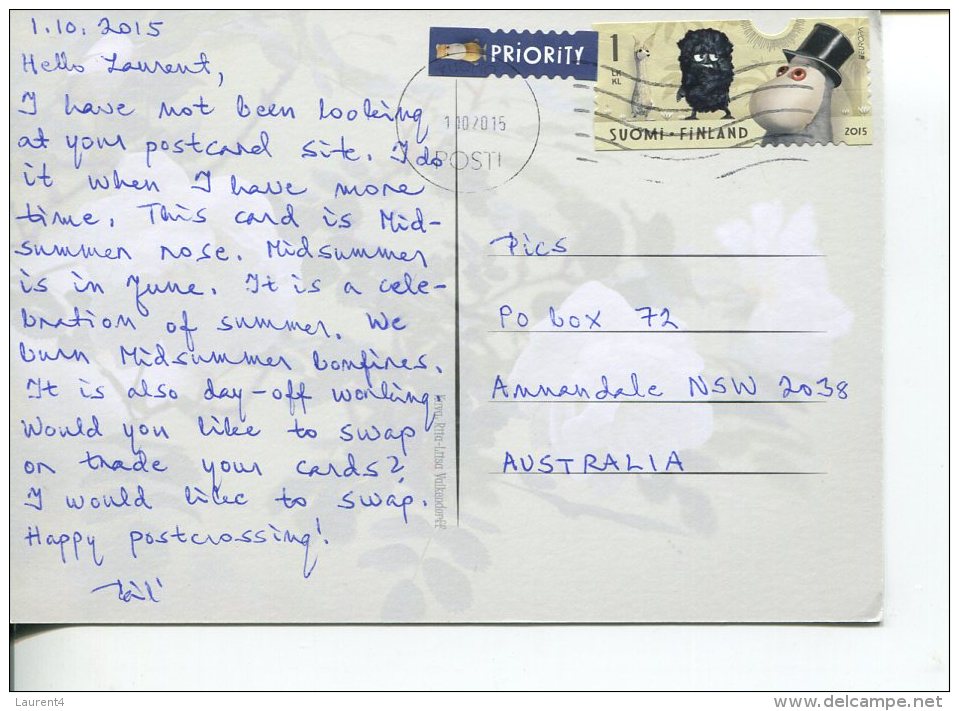 1.10.2015
Hello Laurent,
I have not been looking
at your postcard site. I do
it when I have more
time. This card is Mid-
summer rose. Midsummer
is in June. It is a cele-
bration of summer. We
burn Midsummer bonfires.
It is also day-off working.
Would you like to swap
or trade your cards?
I would like to swap.
Happy postcrossing!
PRIORITY
1 10 2015
POSTI
1
LK
KL
EUROPA
SUOMI • FINLAND
2015
Pics
PO box 72
Annandale NSW 2038
AUSTRALIA
Kuva: Riita-Liisa Valkendorff
Laurent4
www.delcampe.net